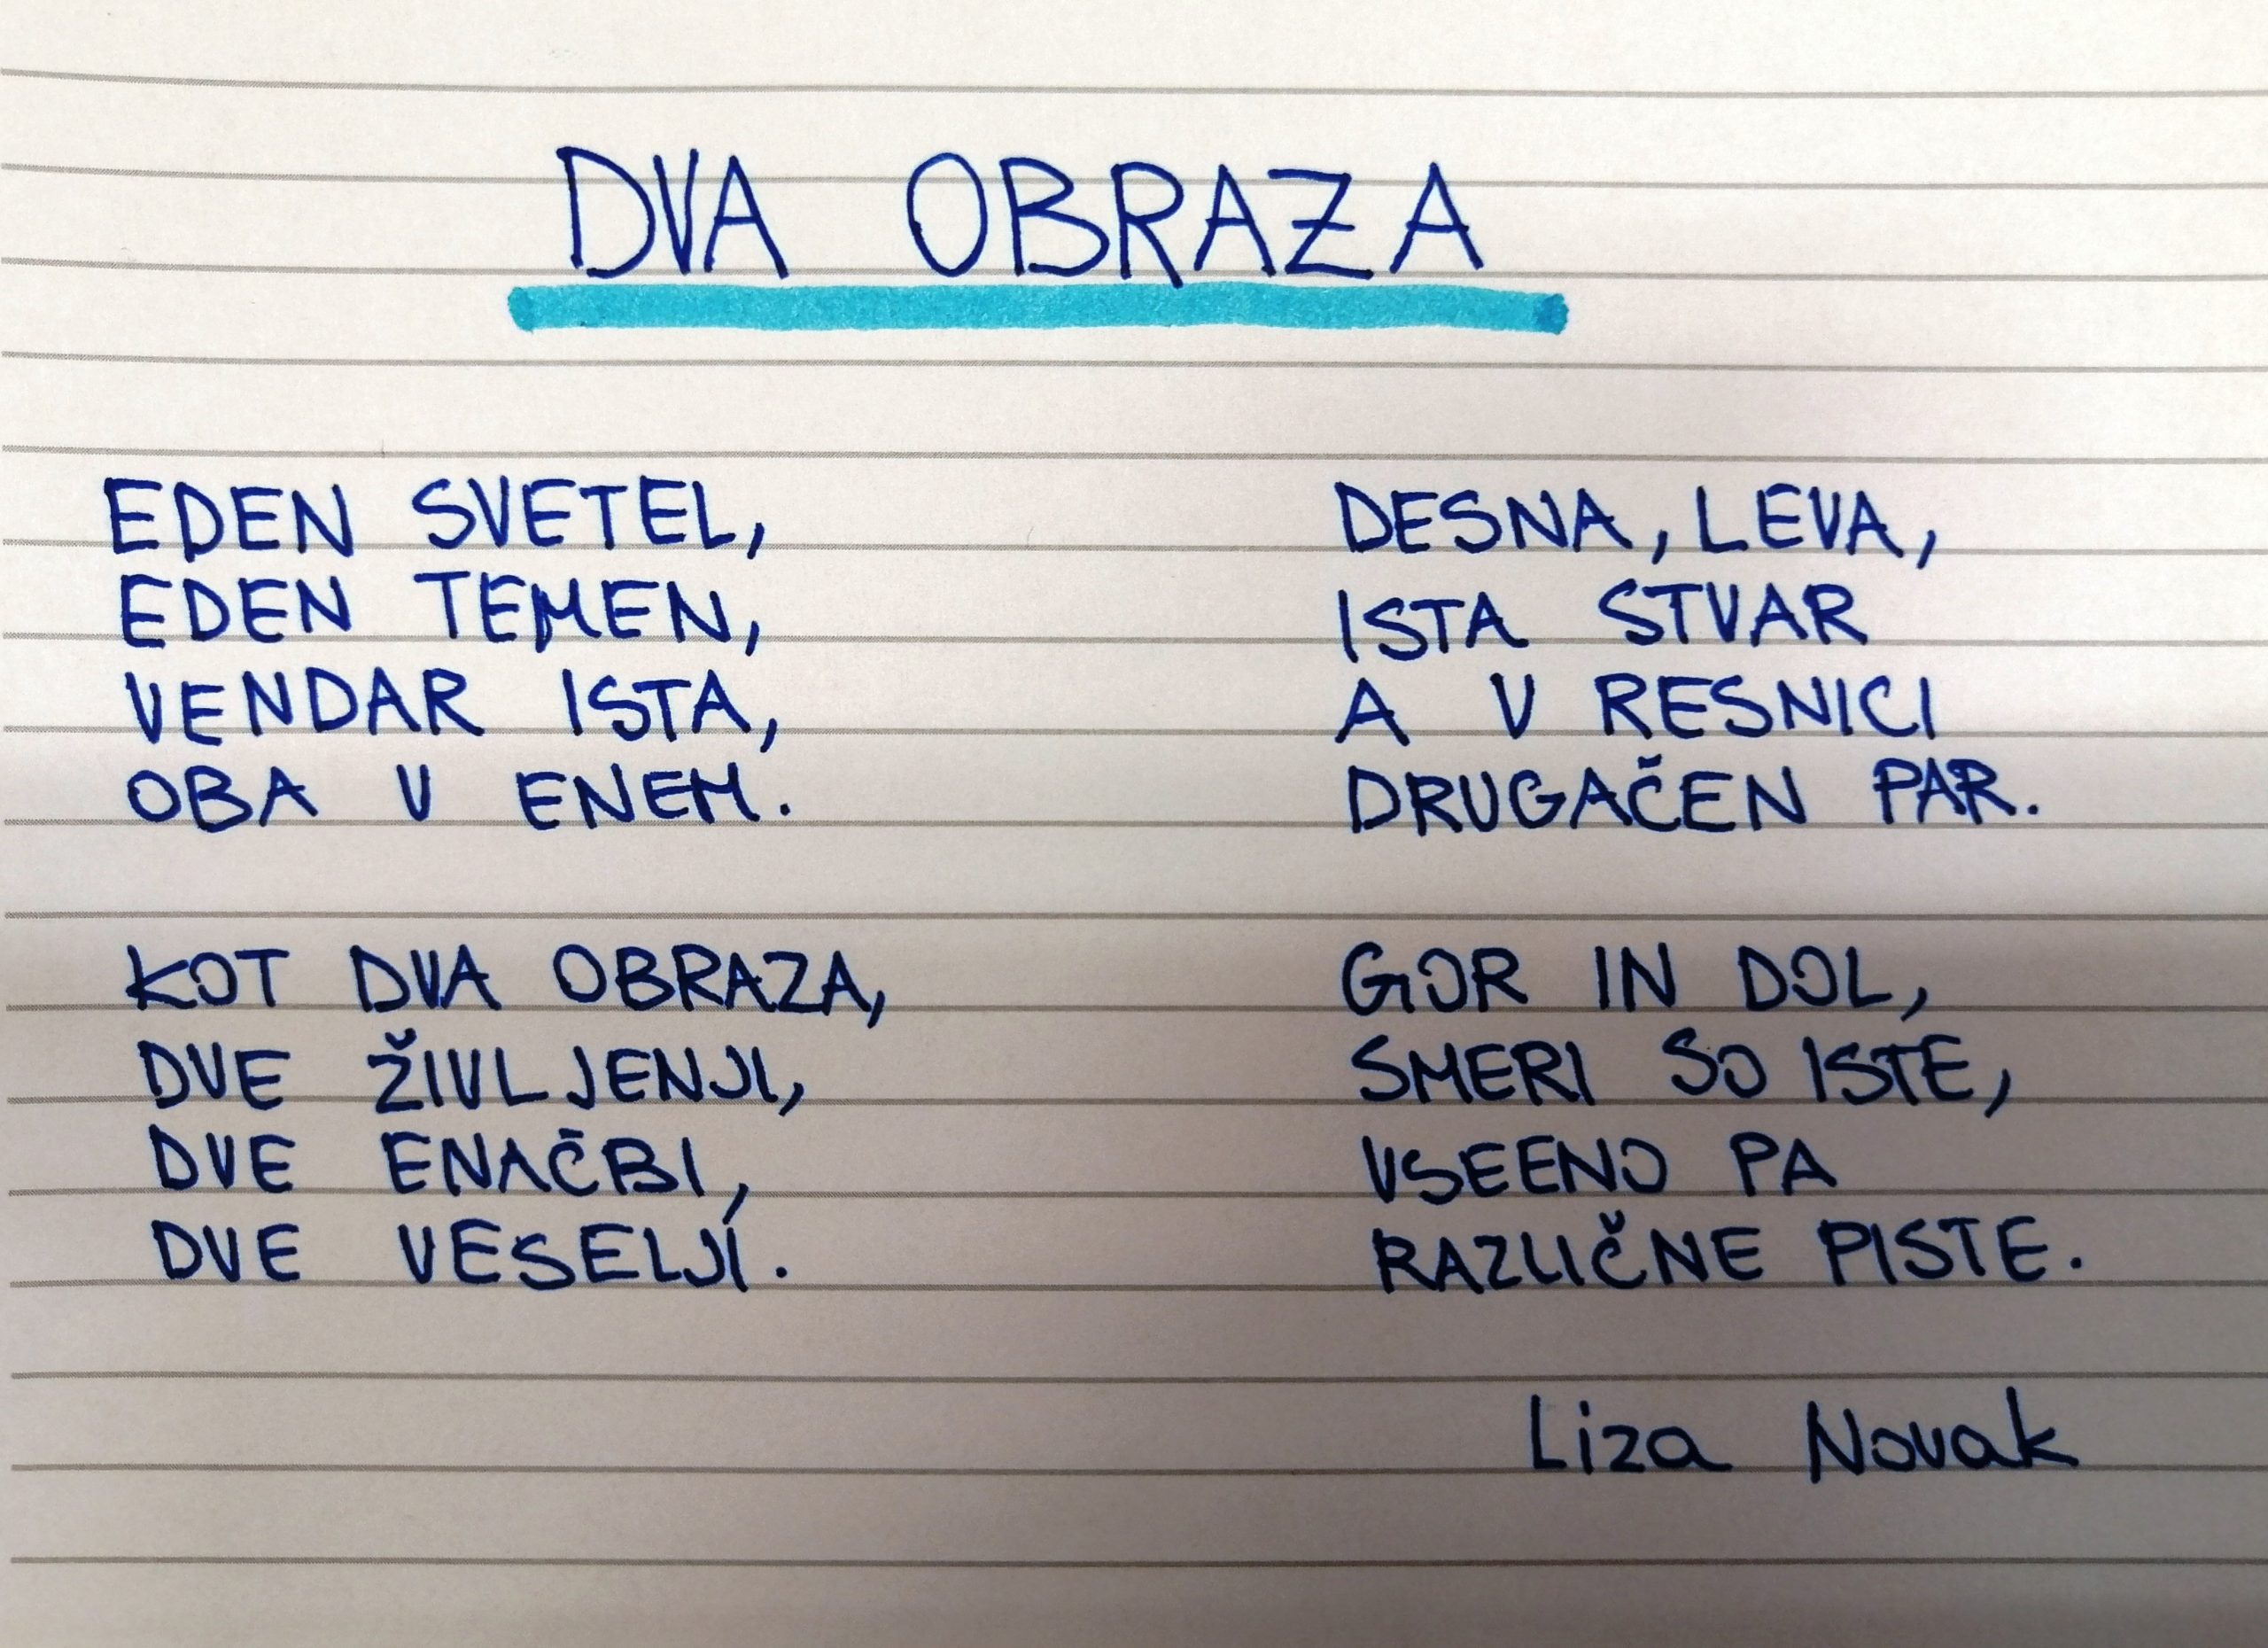 DVA OBRAZA
EDEN SVETEL,
EDEN TEMEN,
VENDAR ISTA,
OBA V ENEM.
KOT DVA OBRAZA,
DVE ŽIVLJENJI,
DVE ENAČBI,
DVE VESELJI.
DESNA, LEVA,
ISTA STVAR
A V RESNICI
DRUGAČEN PAR.
GOR IN DOL,
SMERI SO ISTE,
VSEENO PA
RAZLIČNE PISTE.
Liza Novak